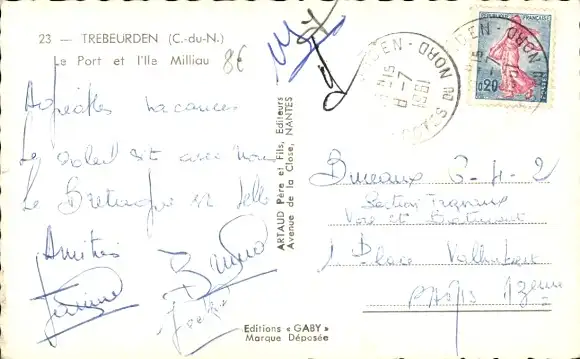 23 — TREBEURDEN (C.-du-N.)
Le Port et l'Ile Milliau
8€
Agréables vacances
Le soleil est avec nous
La Bretagne est belle
Amitiés
ARTAUD Père et Fils, Editeurs
Avenue de la Close, NANTES
Editions « GABY »
Marque Déposée
8-7
1961
DU NORD
REPUBLIQUE FRANÇAISE
0,20
Bureaux 6-4-2
Section Travaux
Voie et Bâtiment
1 Place Valhubert
PARIS 13eme